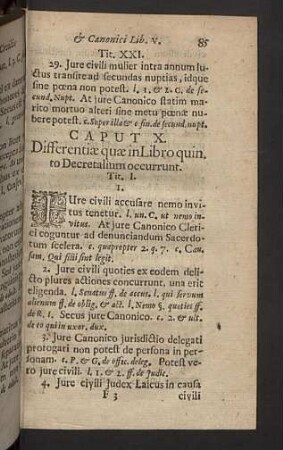 & Canonici Lib. V. 85
Tit. XXI.
29. Jure civili mulier intra annum lu-
ctus transire ad secundas nuptias, idque
sine pœna non potest. l. 1, & 2. C. de se-
cund. Nupt. At jure Canonico statim ma-
rito mortuo alteri sine metu pœnæ nu-
bere potest. c. Super illa & c fin. de secund. nupt.
CAPUT X.
Differentiæ quæ in Libro quin-
to Decretalium occurrunt.
Tit. I.
1.
JUre civili accusare nemo invi-
tus tenetur. l. un. C. ut nemo in-
vitus. At jure Canonico Cleri-
ci coguntur ad denunciandum Sacerdo-
tum scelera. c. quapropter 2. q. 7. c. Cau-
sam. Qui filii sint legit.
2. Jure civili quoties ex eodem deli-
cto plures actiones concurrunt, una erit
eligenda. l. Senatus ff. de accus. l. qui servum
alienum ff. de oblig. & act. l. Nemo §. quoties ff.
de R. I. Secus jure Canonico. c. 2. & ult.
de eo qui in uxor. dux.
3. Jure Canonico jurisdictio delegati
prorogari non potest de persona in per-
sonam. c. P. & G. de offic. deleg. Potest ve-
ro jure civili. l. 1. & 2. ff. de Judic.
4. Jure civili Judex Laicus in causa
F 3 civili